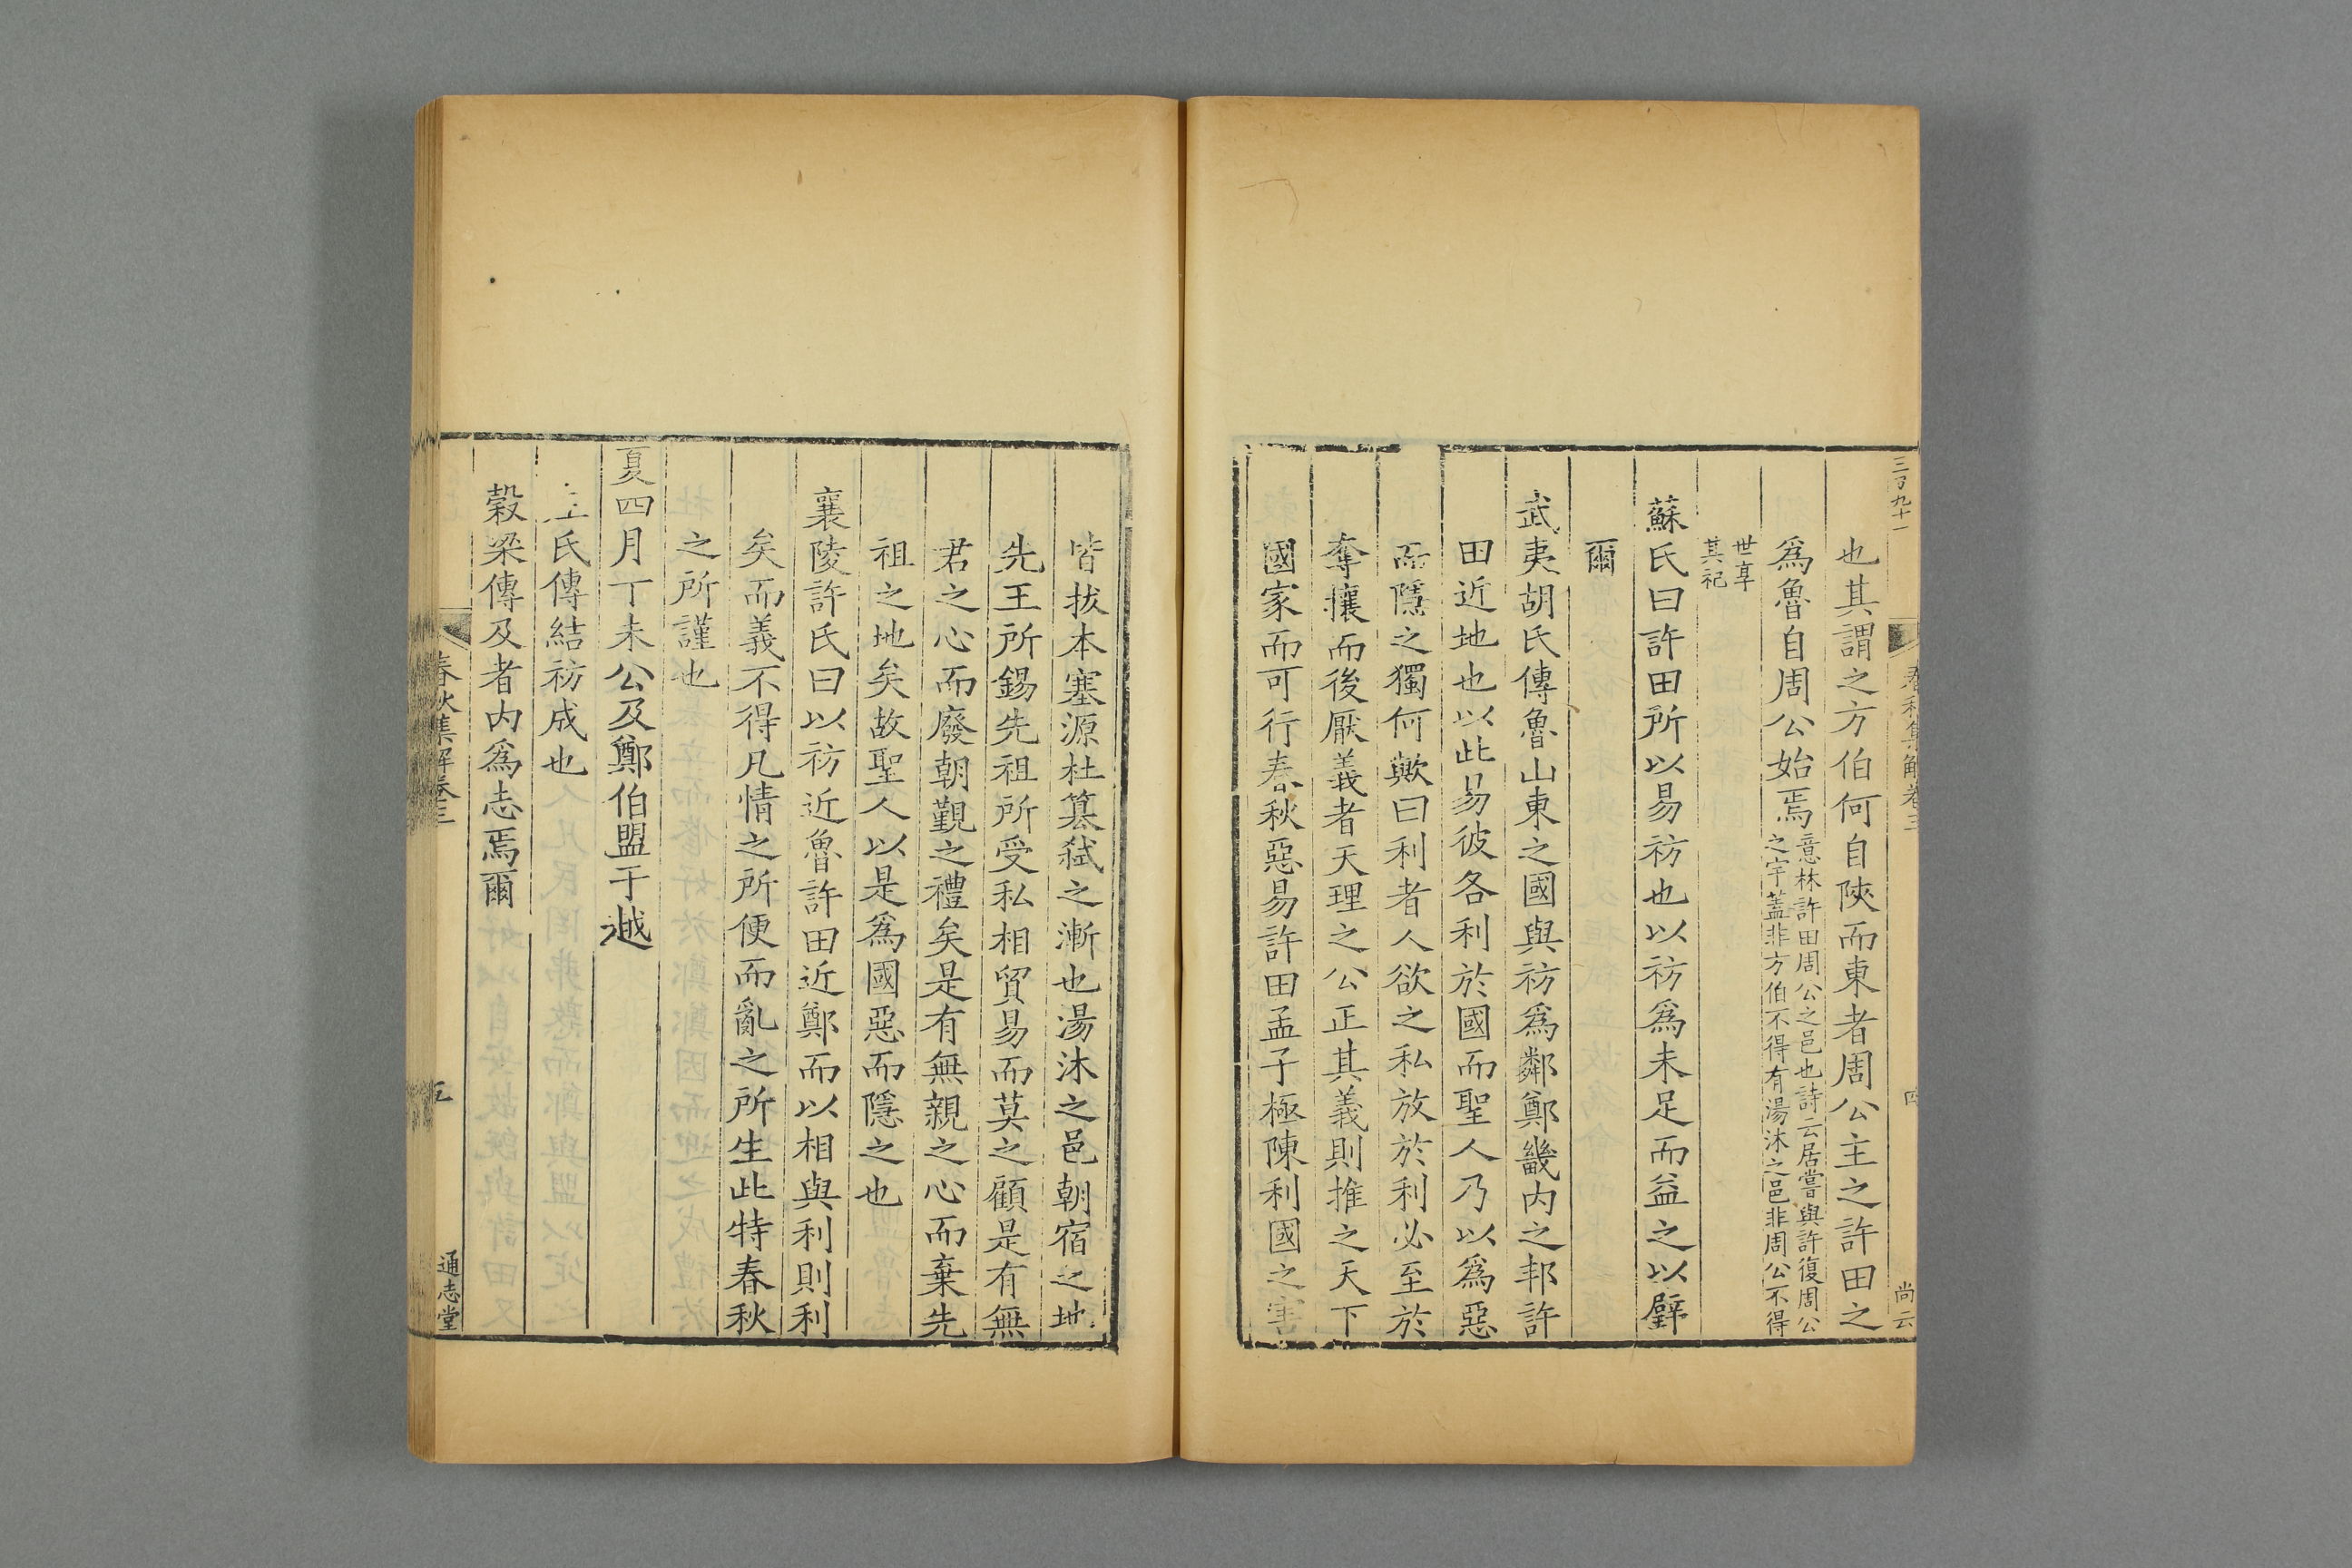 三百九十一
春秋集解卷三
四
尚云
也其謂之方伯何自陝而東者周公主之許田之
為魯自周公始焉意林許田周公之邑也詩云居嘗與許復周公
之宇蓋非方伯不得有湯沐之邑非周公不得
世享
其祀
蘇氏曰許田所以易祊也以祊為未足而益之以璧
爾
武夷胡氏傳魯山東之國與祊為鄰鄭畿内之邦許
田近地也以此易彼各利於國而聖人乃以為惡
而隱之獨何歟曰利者人欲之私放於利必至於
奪攘而後厭義者天理之公正其義則推之天下
國家而可行春秋惡易許田孟子極陳利國之害
皆拔本塞源杜簒弑之漸也湯沐之邑朝宿之地
先王所錫先祖所受私相貿易而莫之顧是有無
君之心而廢朝覲之禮矣是有無親之心而棄先
祖之地矣故聖人以是為國惡而隱之也
襄陵許氏曰以祊近魯許田近鄭而以相與利則利
矣而義不得凡情之所便而亂之所生此特春秋
之所謹也
夏四月丁未公及鄭伯盟于越
左氏傳結祊成也
穀梁傳及者内為志焉爾
春秋集解卷三
五
通志堂